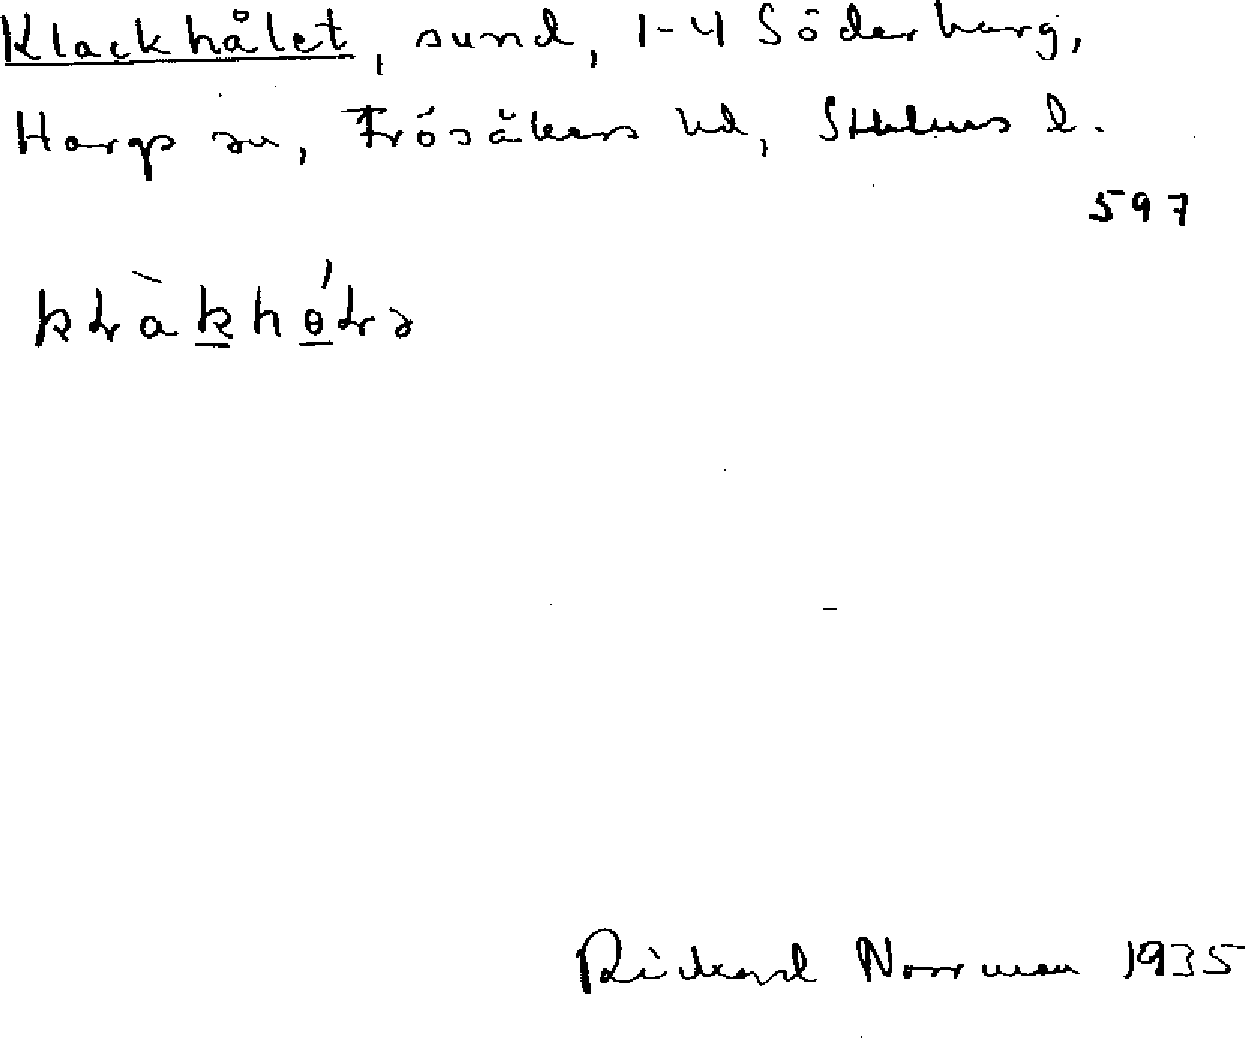 Klackhålet, sund, 1-4 Söderharg,
Hargs sn, Frösåkers hd, Sthlms l.
597
kɽàkhө́ɽə
Rickard Norrman 1935